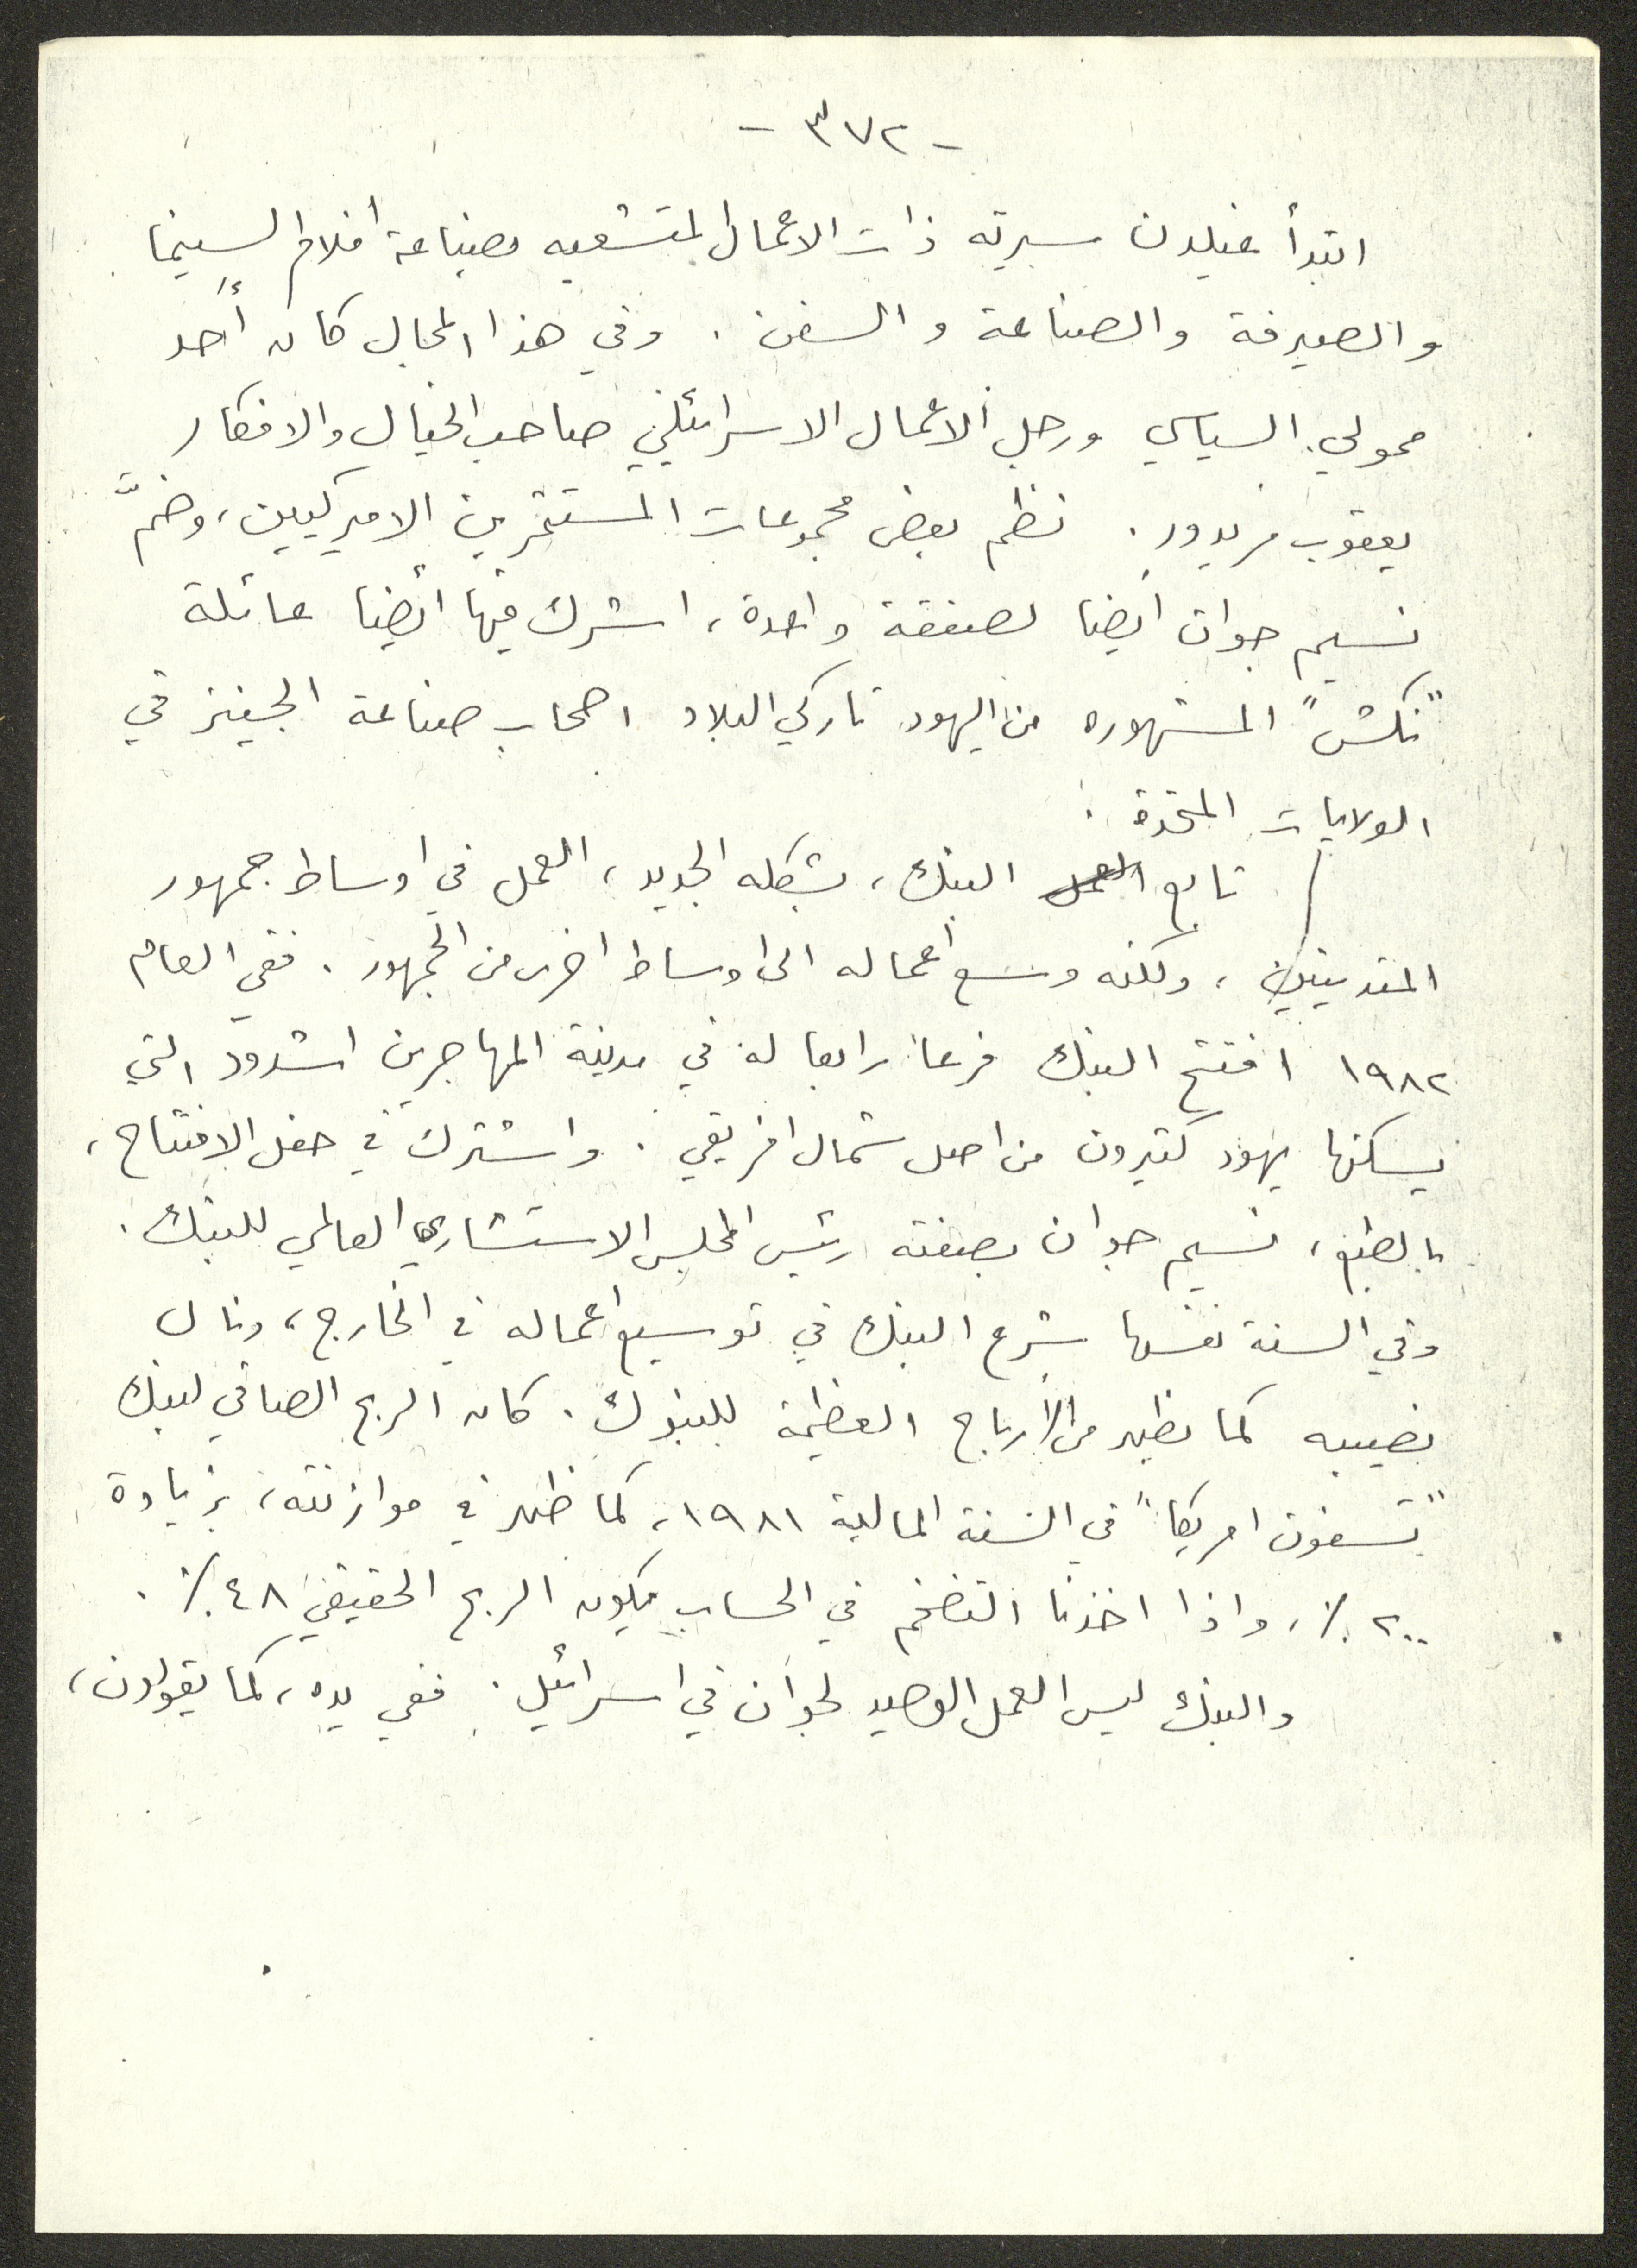 - ٣٧٢ -
ابتدأ غيلدن سيرته ذات الاعمال المتشعبه بصناعة أفلام السينما
والصيرفة والصناعة والسفن . وفي هذا المجال كان أحد
ممولي السياسي ورجل الاعمال الاسرائيلي صاحب الخيال والافكار
يعقوب مريدور . نظم بعض مجموعات المستثمرين الاميركيين ، وضمّ
نسيم جوان أيضا لصفقة واحدة ، اشرك فيها أيضا عائلة
"نكش" المشهوره من اليهود تاركي البلاد اصحاب صناعة الجينز في
الولايات المتحدة .
تابع البنك ، بشكله الجديد ، العمل في اوساط جمهور
المتدينين ، ولكنه وسع أعماله الى اوساط اخرى من الجمهور . ففي العام
١٩٨٢ افتتح البنك فرعا رابعا له في مدينة المهاجرين اشدود التي
يسكنها يهود كثيرون من اصل شمال افريقي . واشترك في حفل الافتتاح ،
بالطبع ، نسيم جوان بصفته رئيس المجلس الاستشاري العالمي للبنك .
وفي السنة نفسها شرع البنك في توسيع اعماله في الخارج ، ونال
نصيبه كما يظهر من الأرباح العظيمة للبنوك . كان الربح الصافي لبنك
"تسفون امريكا" في السنة المالية ١٩٨١ ، كما ظهر في موازنته ، بزيادة
٢٠٠ ٪ ، واذا اخذنا التضخم في الحساب يكون الربح الحقيقي ٤٨ ٪ .
والبنك ليس العمل الوحيد لجوان في اسرائيل . ففي يده ، كما يقولون ،